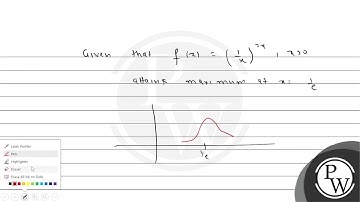 Given that f(x) = (1/x)^2x, x>0
attains maximum at x = 1/e
1/e
Laser Pointer
Pen
Highlighter
Eraser
Erase All Ink on Slide
P
W